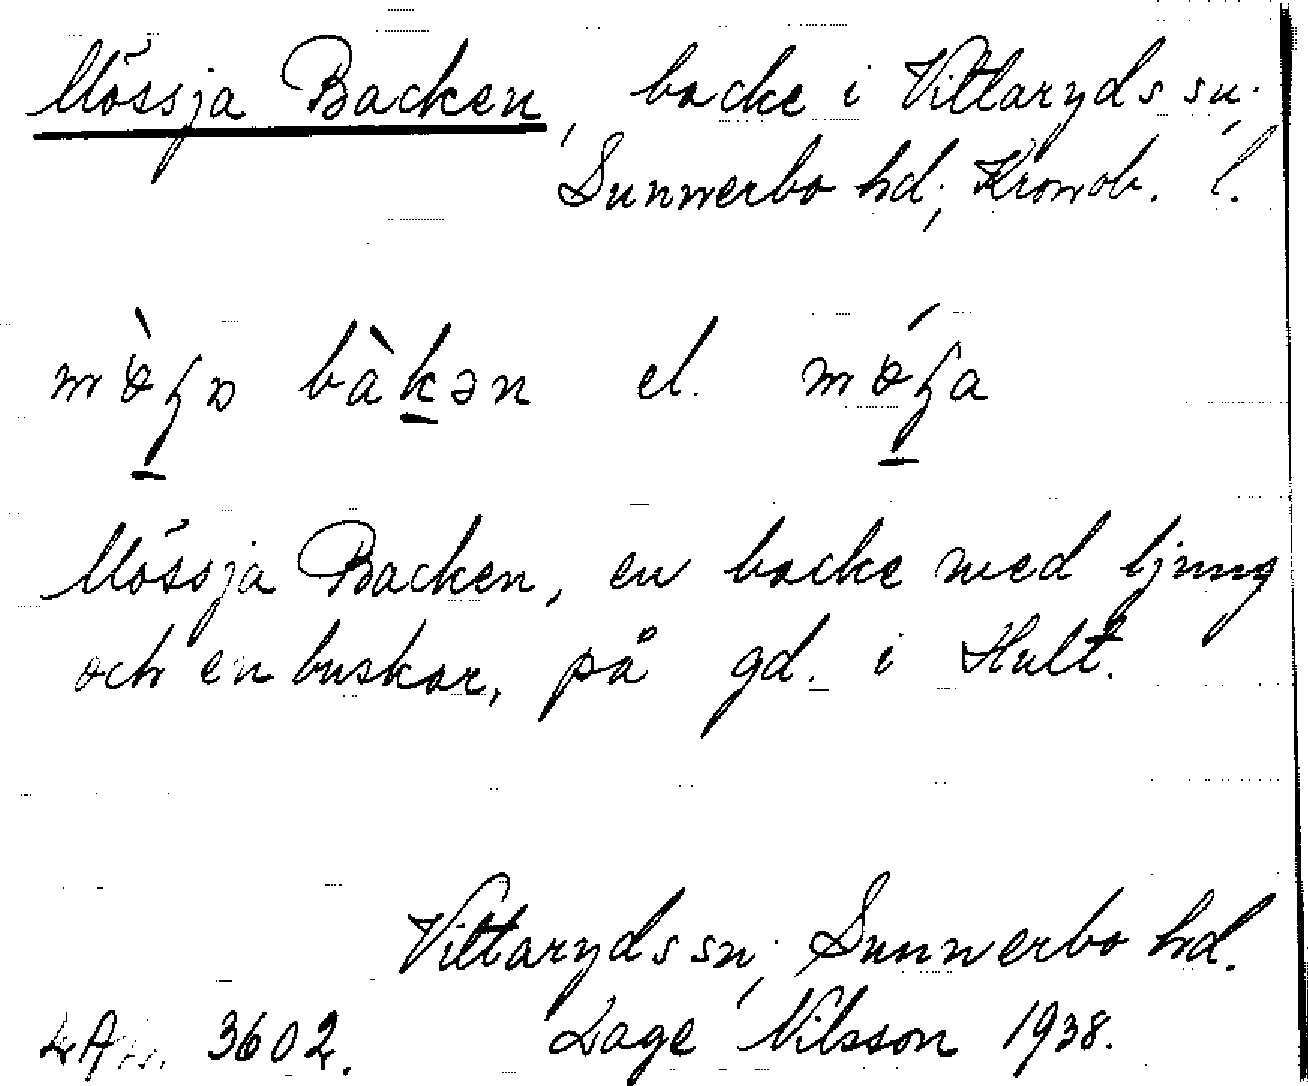 Mössja Backen, backe i Vittaryds sn;
Sunnerbo hd; Kronob. l.
bàkən el.
Mössja Backen, en backe med ljung
och en buskar, på gd. i Hult.
Vittaryds sn; Sunnerbo hd.
3602. Lage Nilsson 1938.